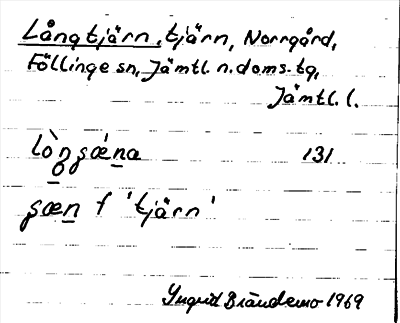 Långtjärn, tjärn, Norrgård,
Föllinge sn, Jämtl. n. doms. tg,
Jämtl. l.
lòŋʂǽna 131
ʂæn f 'tjärn'
Ingrid Brändemo 1969